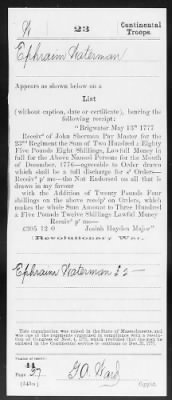 W 23 Continental Troops.
Ephraim Waterman
Appears as shown below on a
List
(without caption, date or certificate), bearing the
following receipt:
"Brigwater May 13th 1777
Receivd of John Sherman Pay Master for the
23rd Regiment the Sum of Two Hundred & Eighty
Five Pounds Eight Shillings, Lawfull Money in
full for the Above Named Persons for the Month
of December, 1776—agreeable to Order drawn
which shall be a full discharge for sd Orders—
Receivd pr me—the Not Endorsed on all that is
drawn in my favour
with the Addition of Twenty Pounds Four
shillings on the above receipt on Orders, which
makes the whole Sum Amount to Three Hundred
& Five Pounds Twelve Shillings Lawful Money
Receivd pr me—
£305 12 0 Josiah Hayden Major"
(Revolutionary War.
Ephraim Waterman
This organization was raised in the State of Massachusetts, and
was one of the regiments organized in compliance with a resolu-
tion of Congress of Nov. 4, 1775, which provided that the men be
enlisted in the Continental service to continue to Dec. 31, 1776.
Number of record:
27
G.O. Ward
Copyist.